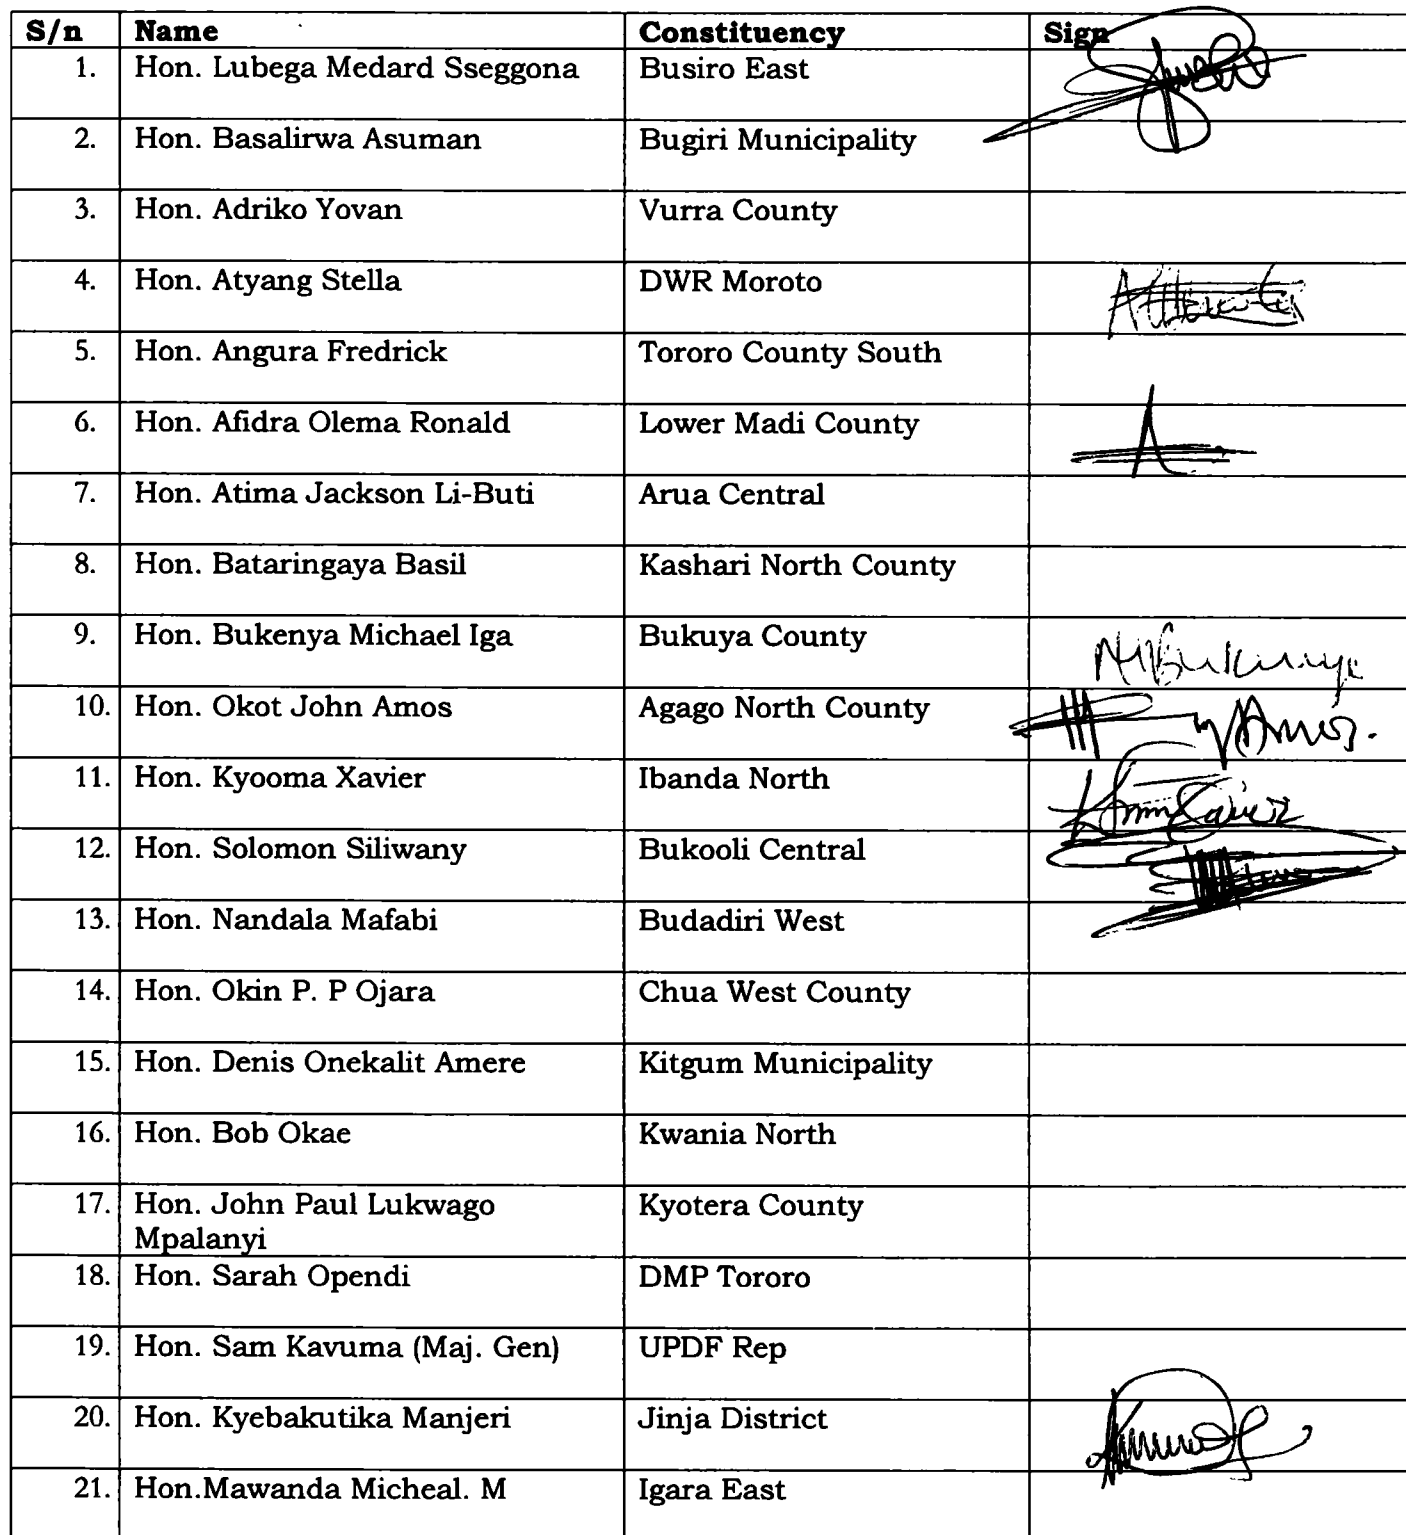 S/n Name Constituency Sign
1. Hon. Lubega Medard Sseggona Busiro East
2. Hon. Basalirwa Asuman Bugiri Municipality
3. Hon. Adriko Yovan Vurra County
4. Hon. Atyang Stella DWR Moroto
5. Hon. Angura Fredrick Tororo County South
6. Hon. Afidra Olema Ronald Lower Madi County
7. Hon. Atima Jackson Li-Buti Arua Central
8. Hon. Bataringaya Basil Kashari North County
9. Hon. Bukenya Michael Iga Bukuya County
10. Hon. Okot John Amos Agago North County Amos.
11. Hon. Kyooma Xavier Ibanda North
12. Hon. Solomon Siliwany Bukooli Central
13. Hon. Nandala Mafabi Budadiri West
14. Hon. Okin P. P Ojara Chua West County
15. Hon. Denis Onekalit Amere Kitgum Municipality
16. Hon. Bob Okae Kwania North
17. Hon. John Paul Lukwago Kyotera County
Mpalanyi
18. Hon. Sarah Opendi DMP Tororo
19. Hon. Sam Kavuma (Maj. Gen) UPDF Rep
20. Hon. Kyebakutika Manjeri Jinja District
21. Hon.Mawanda Micheal. M Igara East